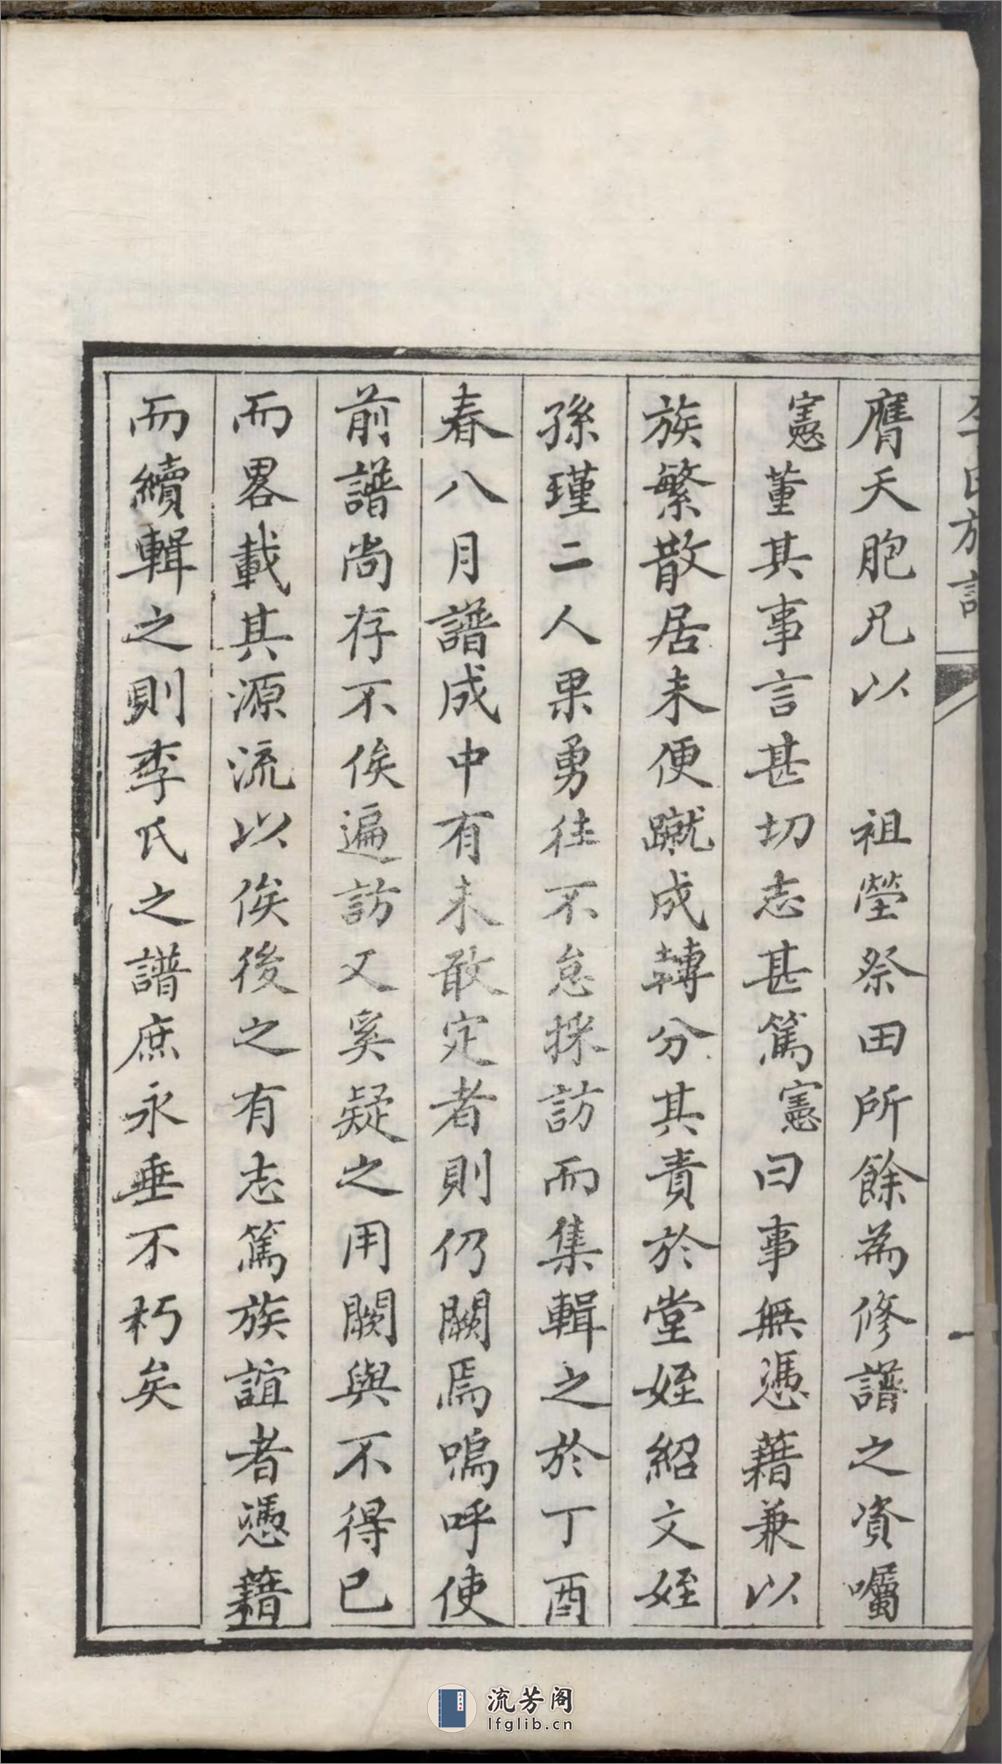 李氏族譜
膺天胞兄以　祖塋祭田所餘為修譜之資囑
憲董其事言甚切志甚篤憲曰事無憑藉兼以
族繁散居未便蹴成轉分其責於堂姪紹文姪
孫瑾二人果勇往不怠採訪而集輯之於丁酉
春八月譜成中有未敢定者則仍闕焉嗚呼使
前譜尚存不俟遍訪又奚疑之用闕與不得已
而畧載其源流以俟後之有志篤族誼者憑藉
而續輯之則李氏之譜庶永垂不朽矣
流芳阁
lfglib.cn